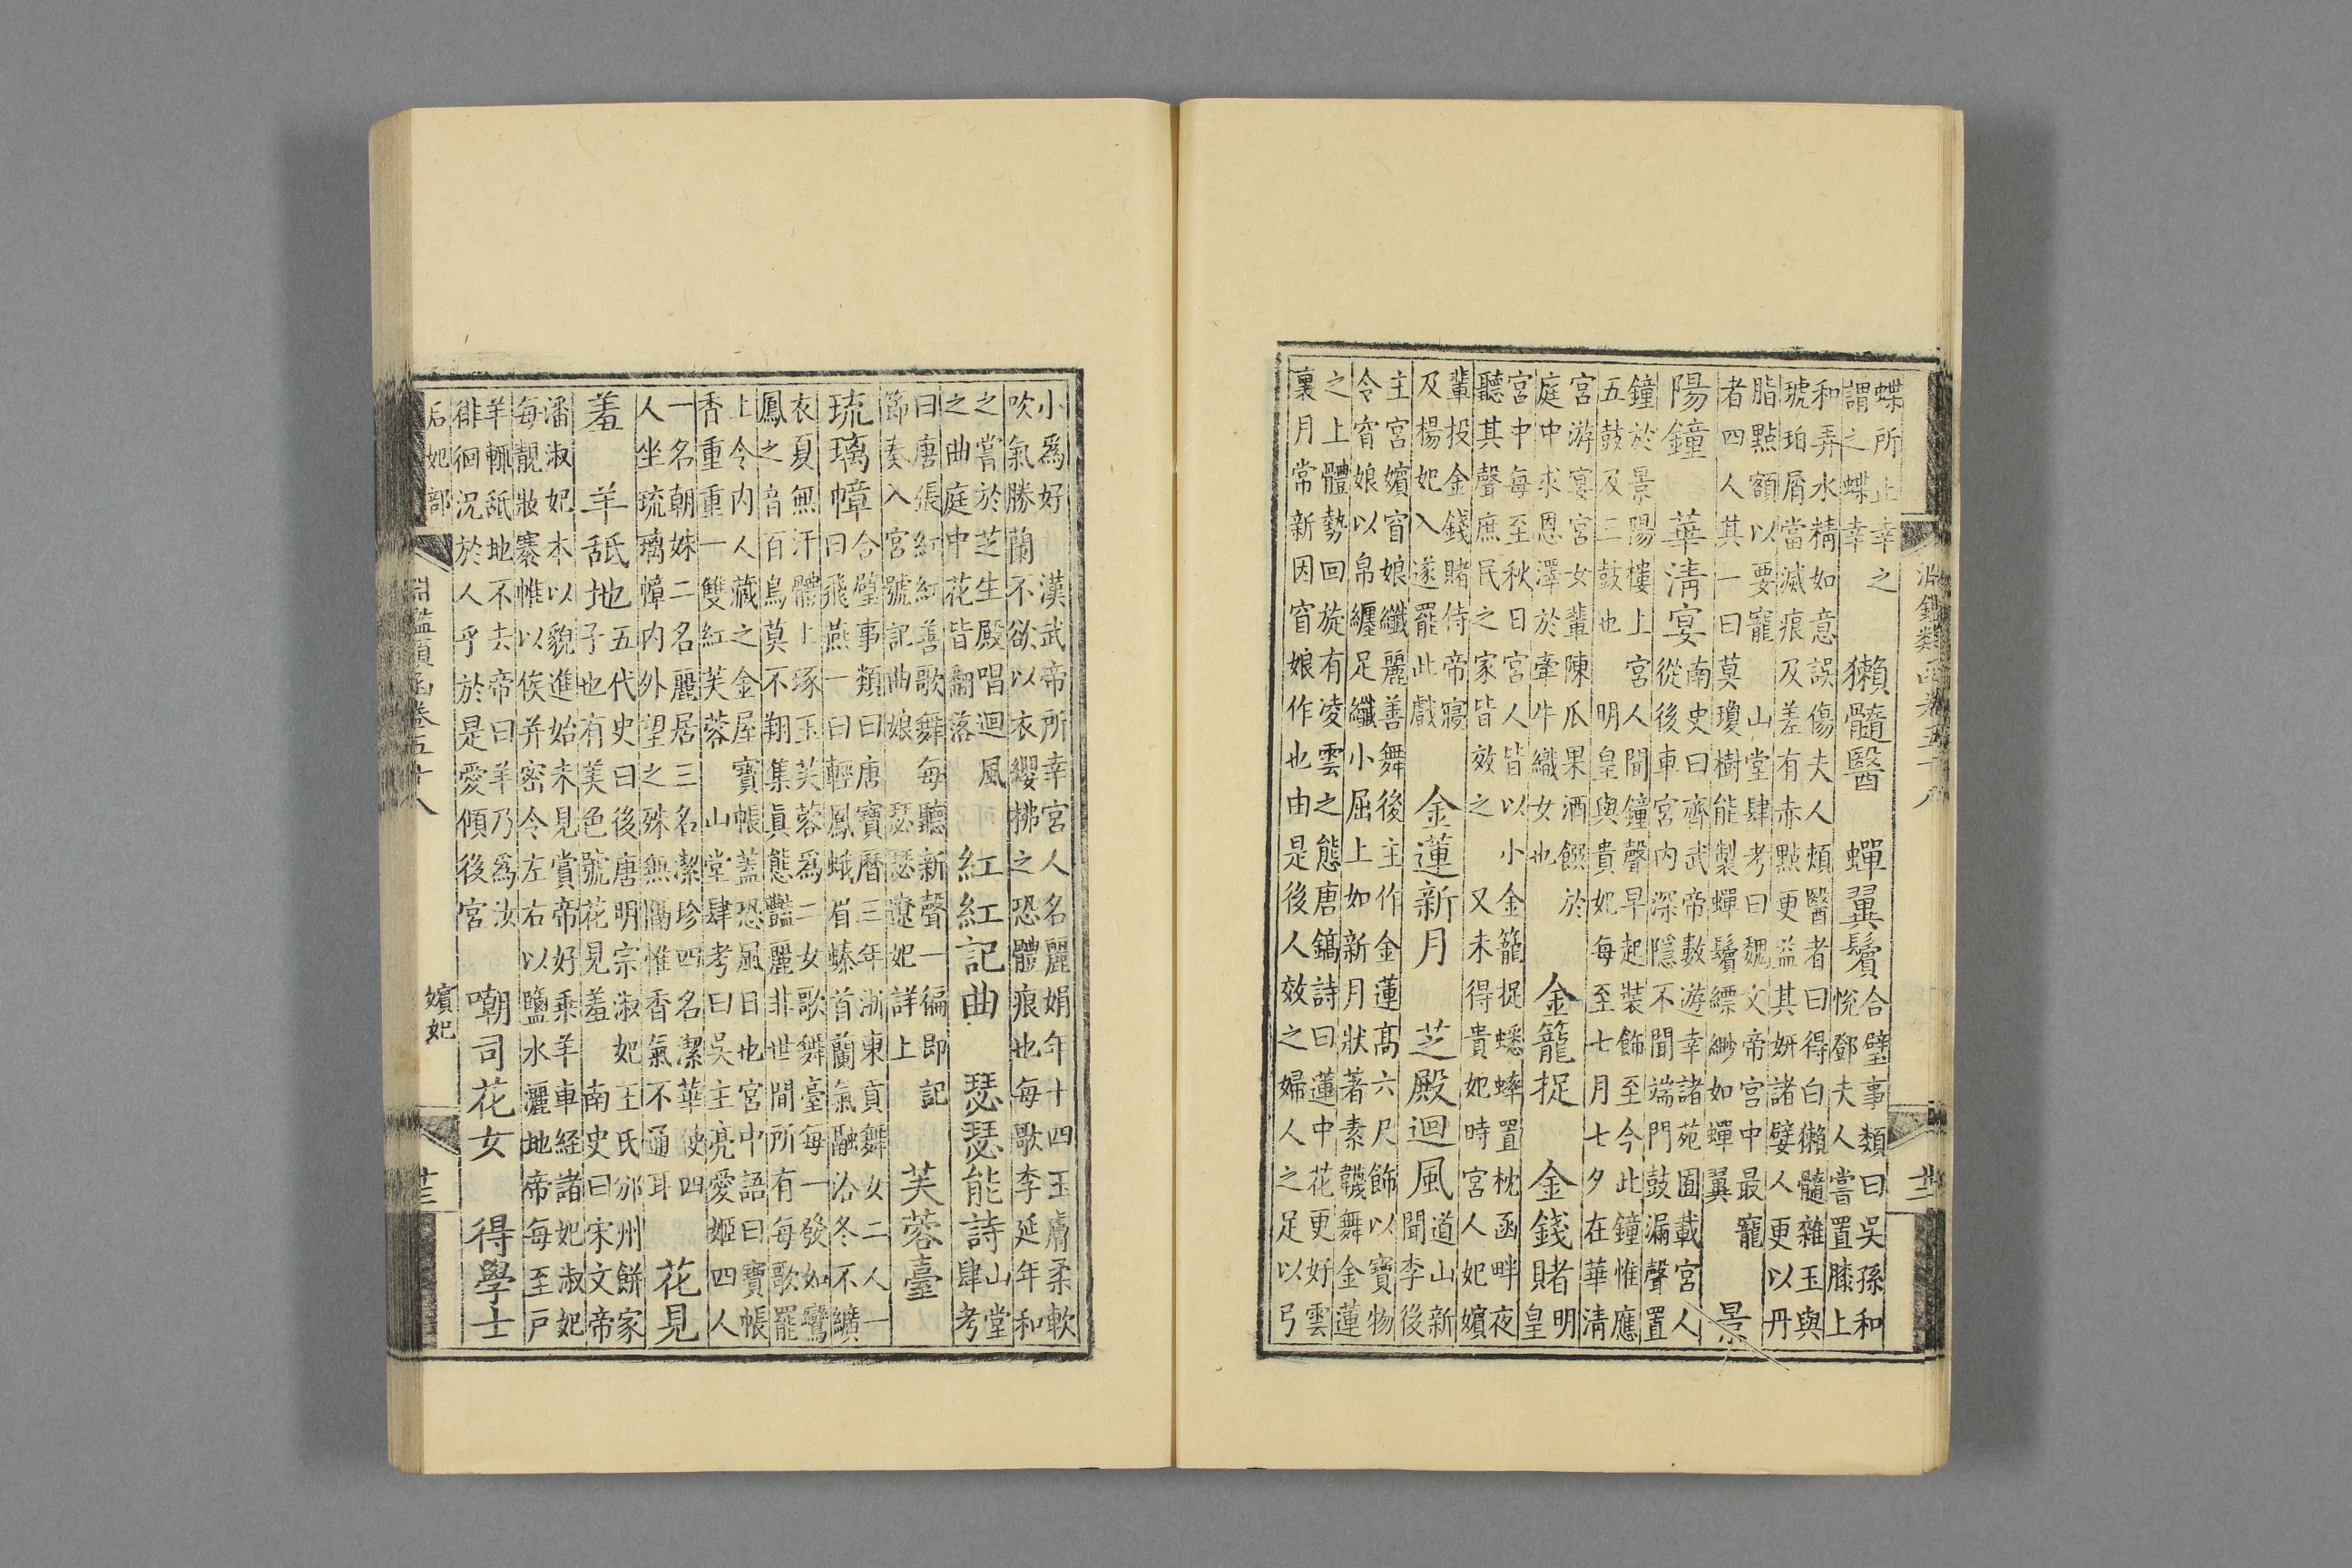 淵鑑類函卷五十八 廿二
蝶所止幸之
謂之蝶幸
獺髓醫 蟬翼鬢
合璧事類曰吳孫和
悅鄧夫人嘗置膝上
和弄水精如意誤傷夫人頰醫者曰得白獺髓雜玉與
琥珀屑當滅痕及差有赤點更益其妍諸嬖人更以丹
脂點額以要寵 山堂肆考曰魏文帝宮中最寵
者四人其一曰莫瓊樹能製蟬鬢縹緲如蟬翼
景
陽鐘 華清宴
南史曰齊武帝數游幸諸苑囿載宮人
從後車宮內深隱不聞端門鼓漏聲置
鐘於景陽樓上宮人聞鐘聲早起裝飾至今此鐘惟應
五鼓及三鼓也 明皇與貴妃每至七月七夕在華清
宮游宴宮女輩陳瓜果酒餚於
庭中求恩澤於牽牛織女也
金籠捉 金錢賭
明
皇
宮中每至秋日宮人皆以小金籠捉蟋蟀置枕函畔夜
聽其聲庶民之家皆效之 又未得貴妃時宮人妃嬪
輩投金錢賭侍帝寢
及楊妃入遂罷此戲
金蓮新月 芝殿迴風
道山新
聞李後
主宮嬪窅娘纖麗善舞後主作金蓮高六尺飾以寶物
令窅娘以帛纏足纖小屈上如新月狀著素韈舞金蓮
之上體勢回旋有凌雲之態唐鎬詩曰蓮中花更好雲
裏月常新因窅娘作也由是後人效之婦人之足以弓
小爲好 漢武帝所幸宮人名麗娟年十四玉膚柔軟
吹氣勝蘭不欲以衣纓拂之恐體痕也每歌李延年和
之嘗於芝生殿唱迴風
之曲庭中花皆翻落
紅紅記曲 瑟瑟能詩
山堂
肆考
曰唐張紅紅善歌舞每聽新聲一徧即記
節奏入宮號記曲娘 瑟瑟遼妃詳上
芙蓉臺
琉璃幛
合璧事類曰唐寶曆三年浙東貢舞女二人一
曰飛燕一曰輕鳳蛾眉螓首蘭氣融冶冬不纊
衣夏無汗體上琢玉芙蓉爲二女歌舞臺每一發如鸞
鳳之音百鳥莫不翔集眞態豔麗非世間所有每歌罷
上令內人藏之金屋寶帳蓋恐風日也宮中語曰寶帳
香重重一雙紅芙蓉 山堂肆考曰吳主亮愛姬四人
一名朝姝二名麗居三名潔珍四名潔華使四
人坐琉璃幛內外望之殊無隔惟香氣不通耳
花見
羞 羊舐地
五代史曰後唐明宗淑妃王氏邠州餅家
子也有美色號花見羞 南史曰宋文帝
潘淑妃本以貌進始未見賞帝好乘羊車經諸妃淑妃
每靚妝褰帷以俟并密令左右以鹽水灑地帝每至戶
羊輒舐地不去帝曰羊乃爲汝
徘徊況於人乎於是愛傾後宮
嘲司花女 得學士
后妃部 淵鑑類函卷五十八 嬪妃 廿三